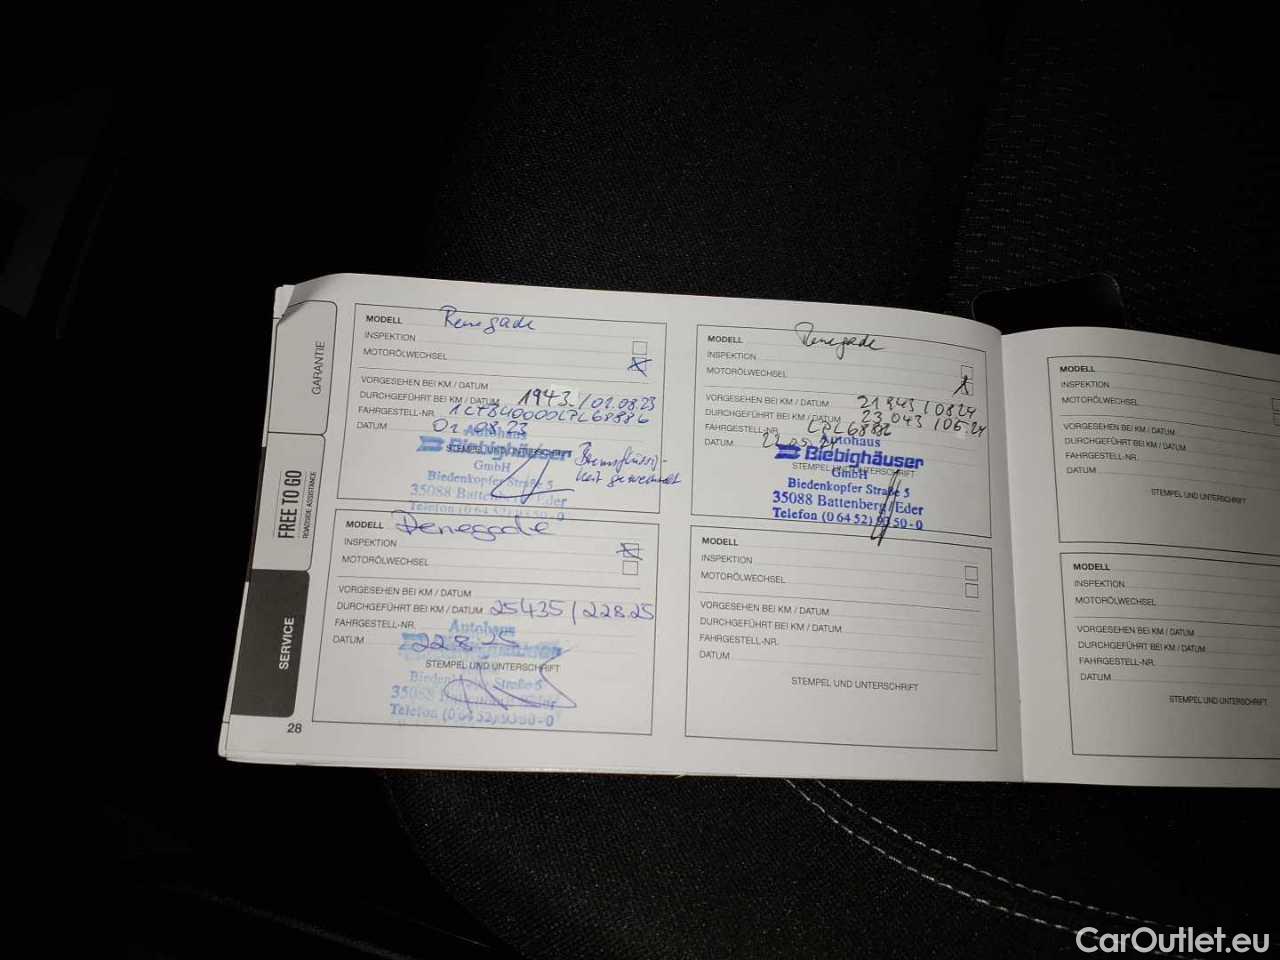 GARANTIE
FREE TO GO
ROADSIDE ASSISTANCE
SERVICE
MODELL Renegade
INSPEKTION
MOTORÖLWECHSEL
VORGESEHEN BEI KM / DATUM
DURCHGEFÜHRT BEI KM / DATUM 1943. / 01.08.23
FAHRGESTELL-NR.
DATUM 01.08.23
Autohaus
Biebighäuser
STEMPEL UND UNTERSCHRIFT
GmbH
Biedenkopfer Straße 5
35088 Battenberg/Eder
Telefon (0 64 52) 9350-0
Bremsflüssig-
keit gewechselt
MODELL Renegade
INSPEKTION
MOTORÖLWECHSEL
VORGESEHEN BEI KM / DATUM
DURCHGEFÜHRT BEI KM / DATUM 25435 / 22.8.25
FAHRGESTELL-NR.
DATUM 22.8.25
Autohaus
STEMPEL UND UNTERSCHRIFT
Biedenkopfer Straße 5
35088
Telefon (0 64 52) 9350-0
28
MODELL Renegade
INSPEKTION
MOTORÖLWECHSEL
VORGESEHEN BEI KM / DATUM 21943 / 08.24
DURCHGEFÜHRT BEI KM / DATUM 23043 / 05.24
FAHRGESTELL-NR. LPL68886
DATUM
Autohaus
Biebighäuser
STEMPEL UND UNTERSCHRIFT
GmbH
Biedenkopfer Straße 5
35088 Battenberg/Eder
Telefon (0 64 52) 9350-0
MODELL
INSPEKTION
MOTORÖLWECHSEL
VORGESEHEN BEI KM / DATUM
DURCHGEFÜHRT BEI KM / DATUM
FAHRGESTELL-NR.
DATUM
STEMPEL UND UNTERSCHRIFT
MODELL
INSPEKTION
MOTORÖLWECHSEL
VORGESEHEN BEI KM / DATUM
DURCHGEFÜHRT BEI KM / DATUM
FAHRGESTELL-NR.
DATUM
STEMPEL UND UNTERSCHRIFT
MODELL
INSPEKTION
MOTORÖLWECHSEL
VORGESEHEN BEI KM / DATUM
DURCHGEFÜHRT BEI KM / DATUM
FAHRGESTELL-NR.
DATUM
STEMPEL UND UNTERSCHRIFT
CarOutlet.eu